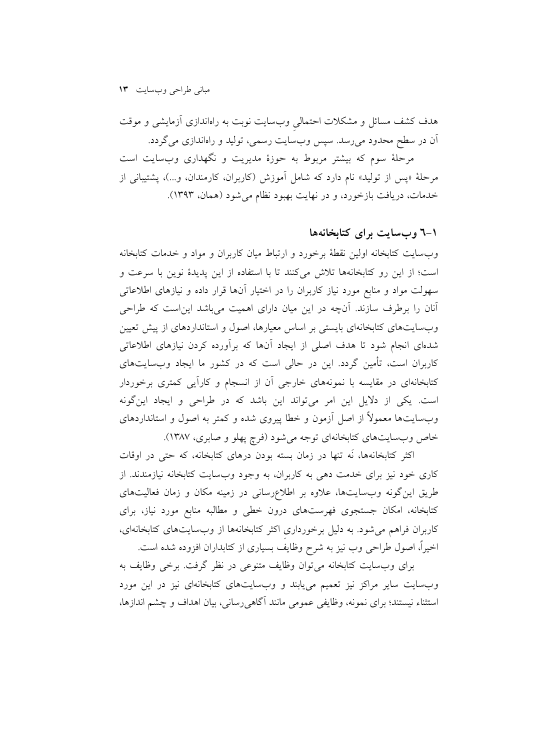 مبانی طراحی وب‌سایت ۱۳
هدف کشف مسائل و مشکلات احتمالیِ وب‌سایت نوبت به راه‌اندازی آزمایشی و موقت
آن در سطح محدود می‌رسد. سپس وب‌سایت رسمی، تولید و راه‌اندازی می‌گردد.
مرحلهٔ سوم که بیشتر مربوط به حوزهٔ مدیریت و نگهداری وب‌سایت است
مرحلهٔ «پس از تولید» نام دارد که شامل آموزش (کاربران، کارمندان، و...)، پشتیبانی از
خدمات، دریافت بازخورد، و در نهایت بهبود نظام می‌شود (همان، ۱۳۹۳).
۱-۶ وب‌سایت برای کتابخانه‌ها
وب‌سایت کتابخانه اولین نقطهٔ برخورد و ارتباط میان کاربران و مواد و خدمات کتابخانه
است؛ از این رو کتابخانه‌ها تلاش می‌کنند تا با استفاده از این پدیدهٔ نوین با سرعت و
سهولت مواد و منابع مورد نیاز کاربران را در اختیار آن‌ها قرار داده و نیازهای اطلاعاتی
آنان را برطرف سازند. آن‌چه در این میان دارای اهمیت می‌باشد این‌است که طراحی
وب‌سایت‌های کتابخانه‌ای بایستی بر اساس معیارها، اصول و استانداردهای از پیش تعیین
شده‌ای انجام شود تا هدف اصلی از ایجاد آن‌ها که برآورده کردن نیازهای اطلاعاتی
کاربران است، تأمین گردد. این در حالی است که در کشور ما ایجاد وب‌سایت‌های
کتابخانه‌ای در مقایسه با نمونه‌های خارجی آن از انسجام و کارآیی کمتری برخوردار
است. یکی از دلایل این امر می‌تواند این باشد که در طراحی و ایجاد این‌گونه
وب‌سایت‌ها معمولاً از اصل آزمون و خطا پیروی شده و کمتر به اصول و استانداردهای
خاص وب‌سایت‌های کتابخانه‌ای توجه می‌شود (فرج پهلو و صابری، ۱۳۸۷).
اکثر کتابخانه‌ها، نه تنها در زمان بسته بودن درهای کتابخانه، که حتی در اوقات
کاری خود نیز برای خدمت دهی به کاربران، به وجود وب‌سایت کتابخانه نیازمندند. از
طریق این‌گونه وب‌سایت‌ها، علاوه بر اطلاع‌رسانی در زمینه مکان و زمان فعالیت‌های
کتابخانه، امکان جستجوی فهرست‌های درون خطی و مطالبه منابع مورد نیاز، برای
کاربران فراهم می‌شود. به دلیل برخورداریِ اکثر کتابخانه‌ها از وب‌سایت‌های کتابخانه‌ای،
اخیراً، اصول طراحی وب نیز به شرح وظایف بسیاری از کتابداران افزوده شده است.
برای وب‌سایت کتابخانه می‌توان وظایف متنوعی در نظر گرفت. برخی وظایف به
وب‌سایت سایر مراکز نیز تعمیم می‌یابند و وب‌سایت‌های کتابخانه‌ای نیز در این مورد
استثناء نیستند؛ برای نمونه، وظایفی عمومی مانند آگاهی‌رسانی، بیان اهداف و چشم اندازها،